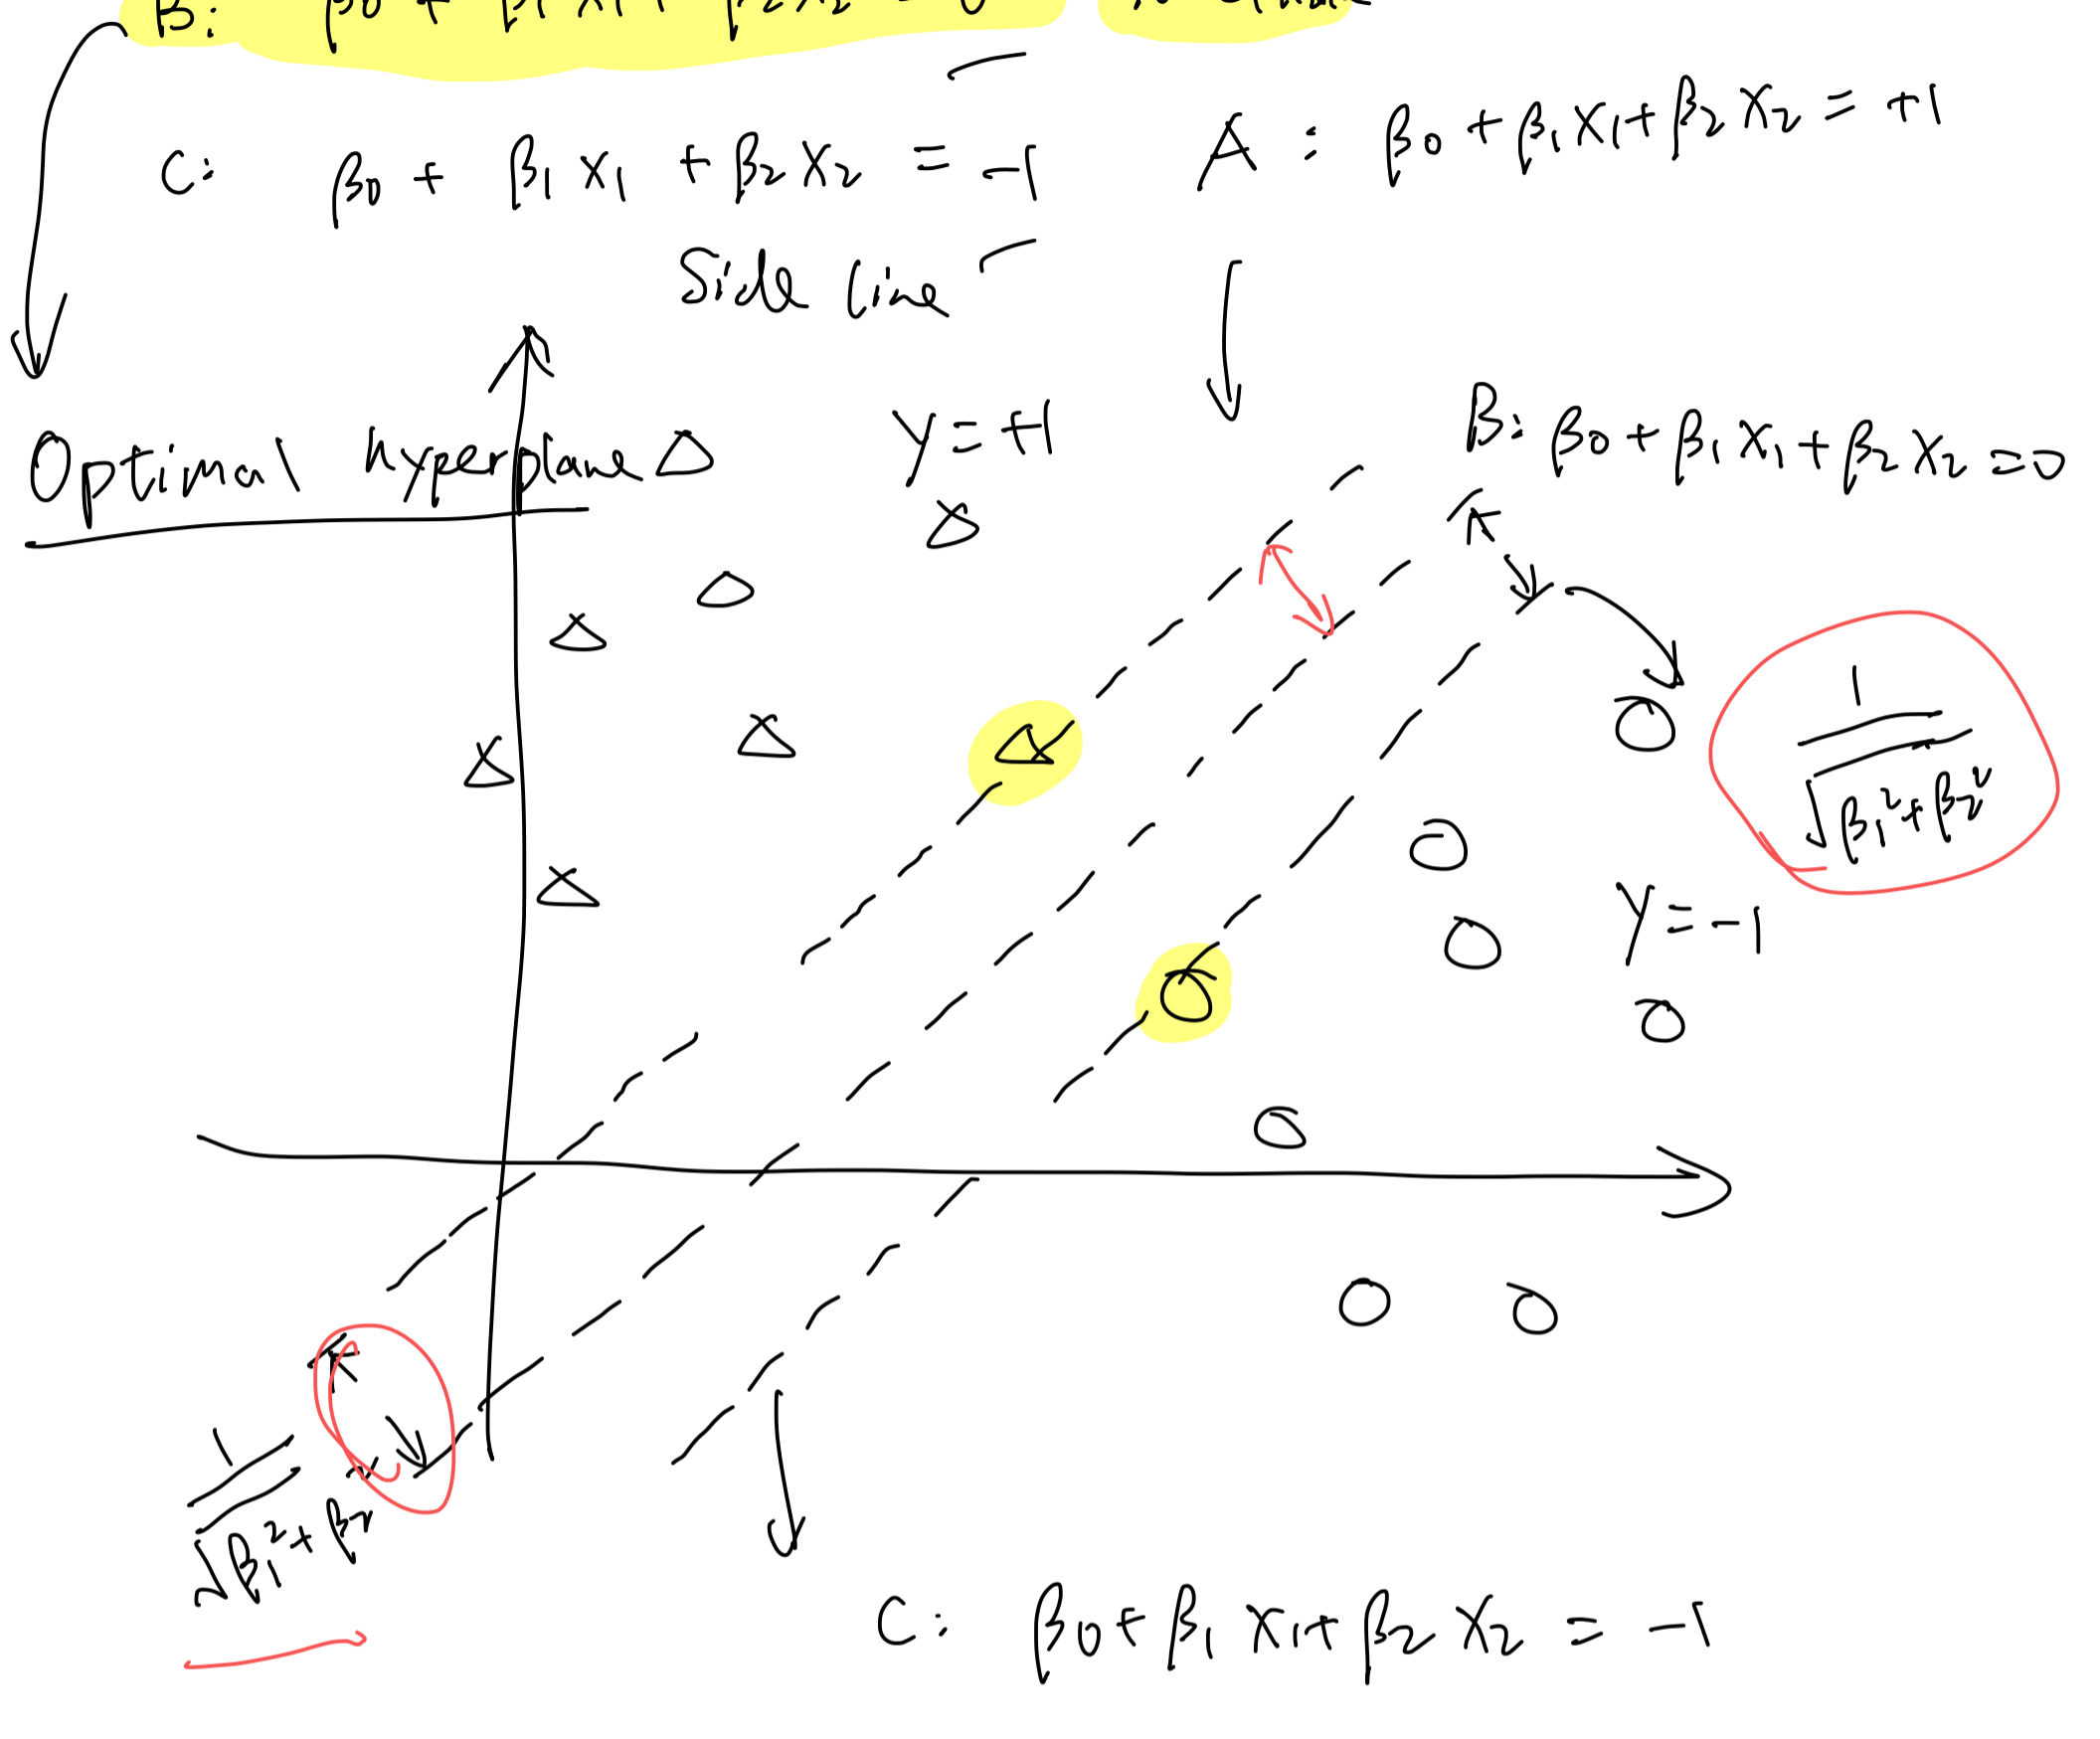 B: β0 + β1 X1 + β2 X2 = 0
C: β0 + β1 X1 + β2 X2 = -1
A : β0 + β1 X1 + β2 X2 = +1
Side line
Optimal hyperplane
Y = +1
B: β0 + β1 X1 + β2 X2 = 0
1
√β1² + β2²
Y = -1
1
√β1² + β2²
C: β0 + β1 X1 + β2 X2 = -1